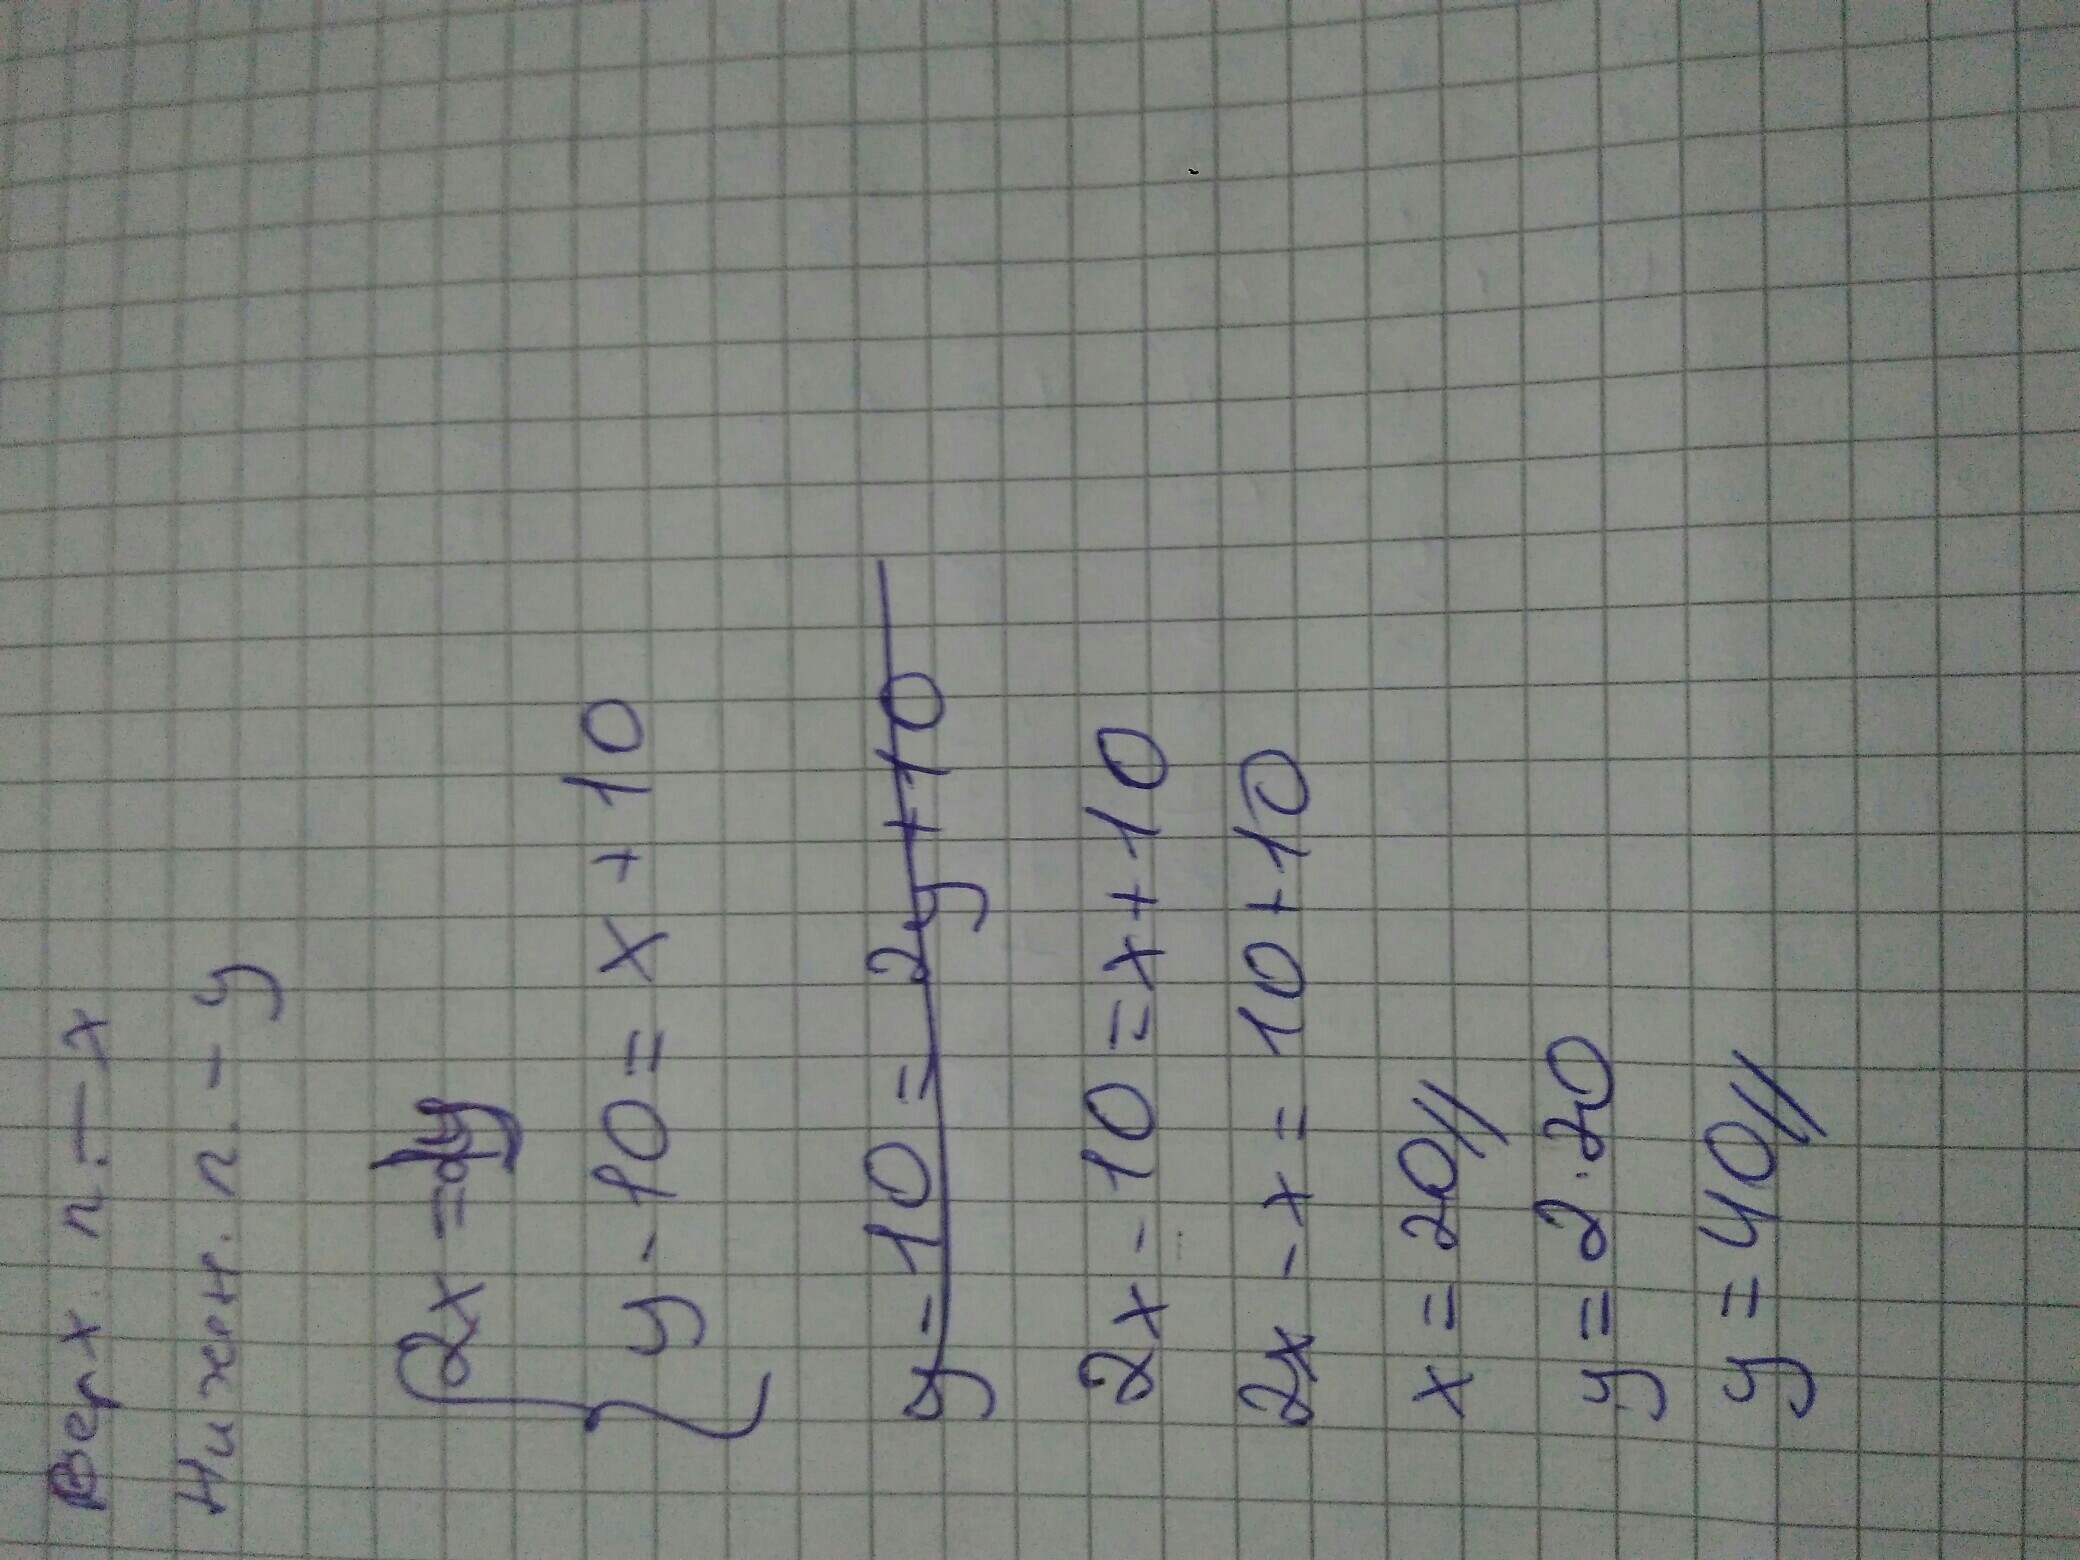 Верх. п. – x
Нижен. п. – y
2x = y
y - 10 = x + 10
y - 10 = 2y + 10
2x - 10 = x + 10
2x - x = 10 + 10
x = 20//
y = 2 · 20
y = 40//